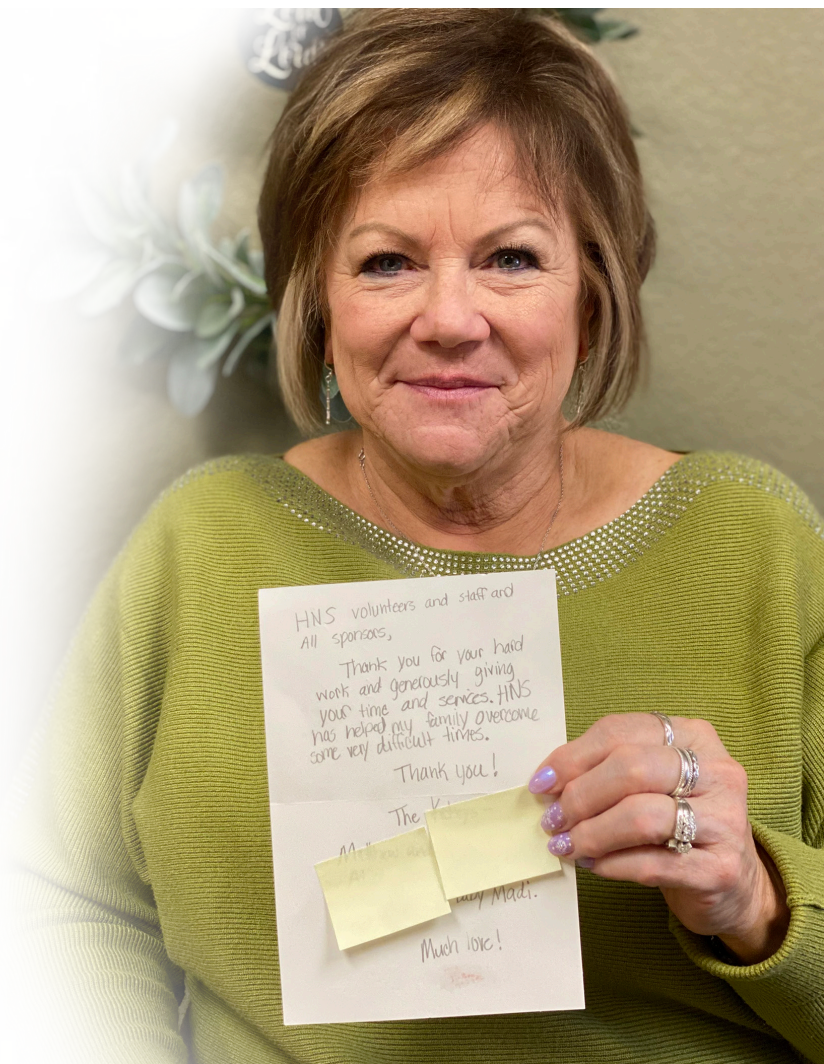 Lord
HNS volunteers and staff and
All sponsors,
Thank you for your hard
work and generously giving
your time and services. HNS
has helped my family overcome
some very difficult times.
Thank you!
The
Madi.
Much love!